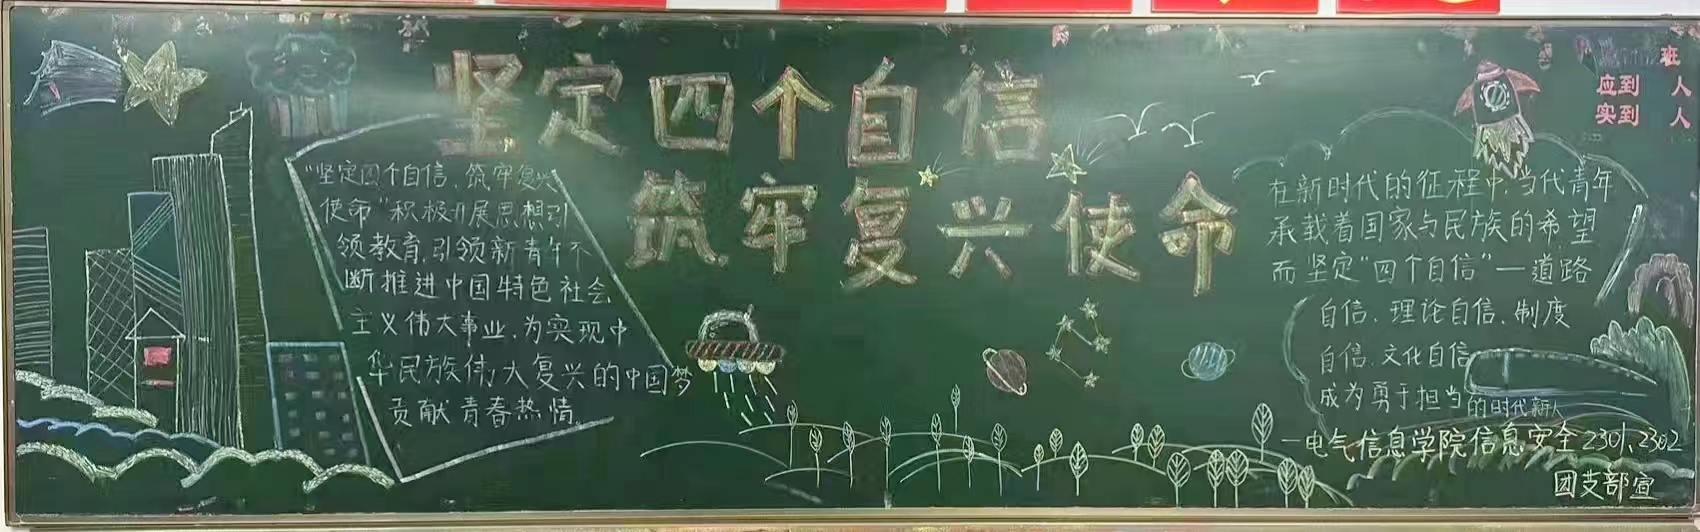 坚定四个自信
筑牢复兴使命
"坚定四个自信、筑牢复兴
使命"积极开展思想引
领教育,引领新青年不
断推进中国特色社会
主义伟大事业,为实现中
华民族伟大复兴的中国梦
贡献青春热情。
在新时代的征程中,当代青年
承载着国家与民族的希望
而坚定"四个自信"—道路
自信、理论自信、制度
自信、文化自信
成为勇于担当的时代新人
—电气信息学院信息安全2301、2302
团支部宣
班
应到 人
实到 人